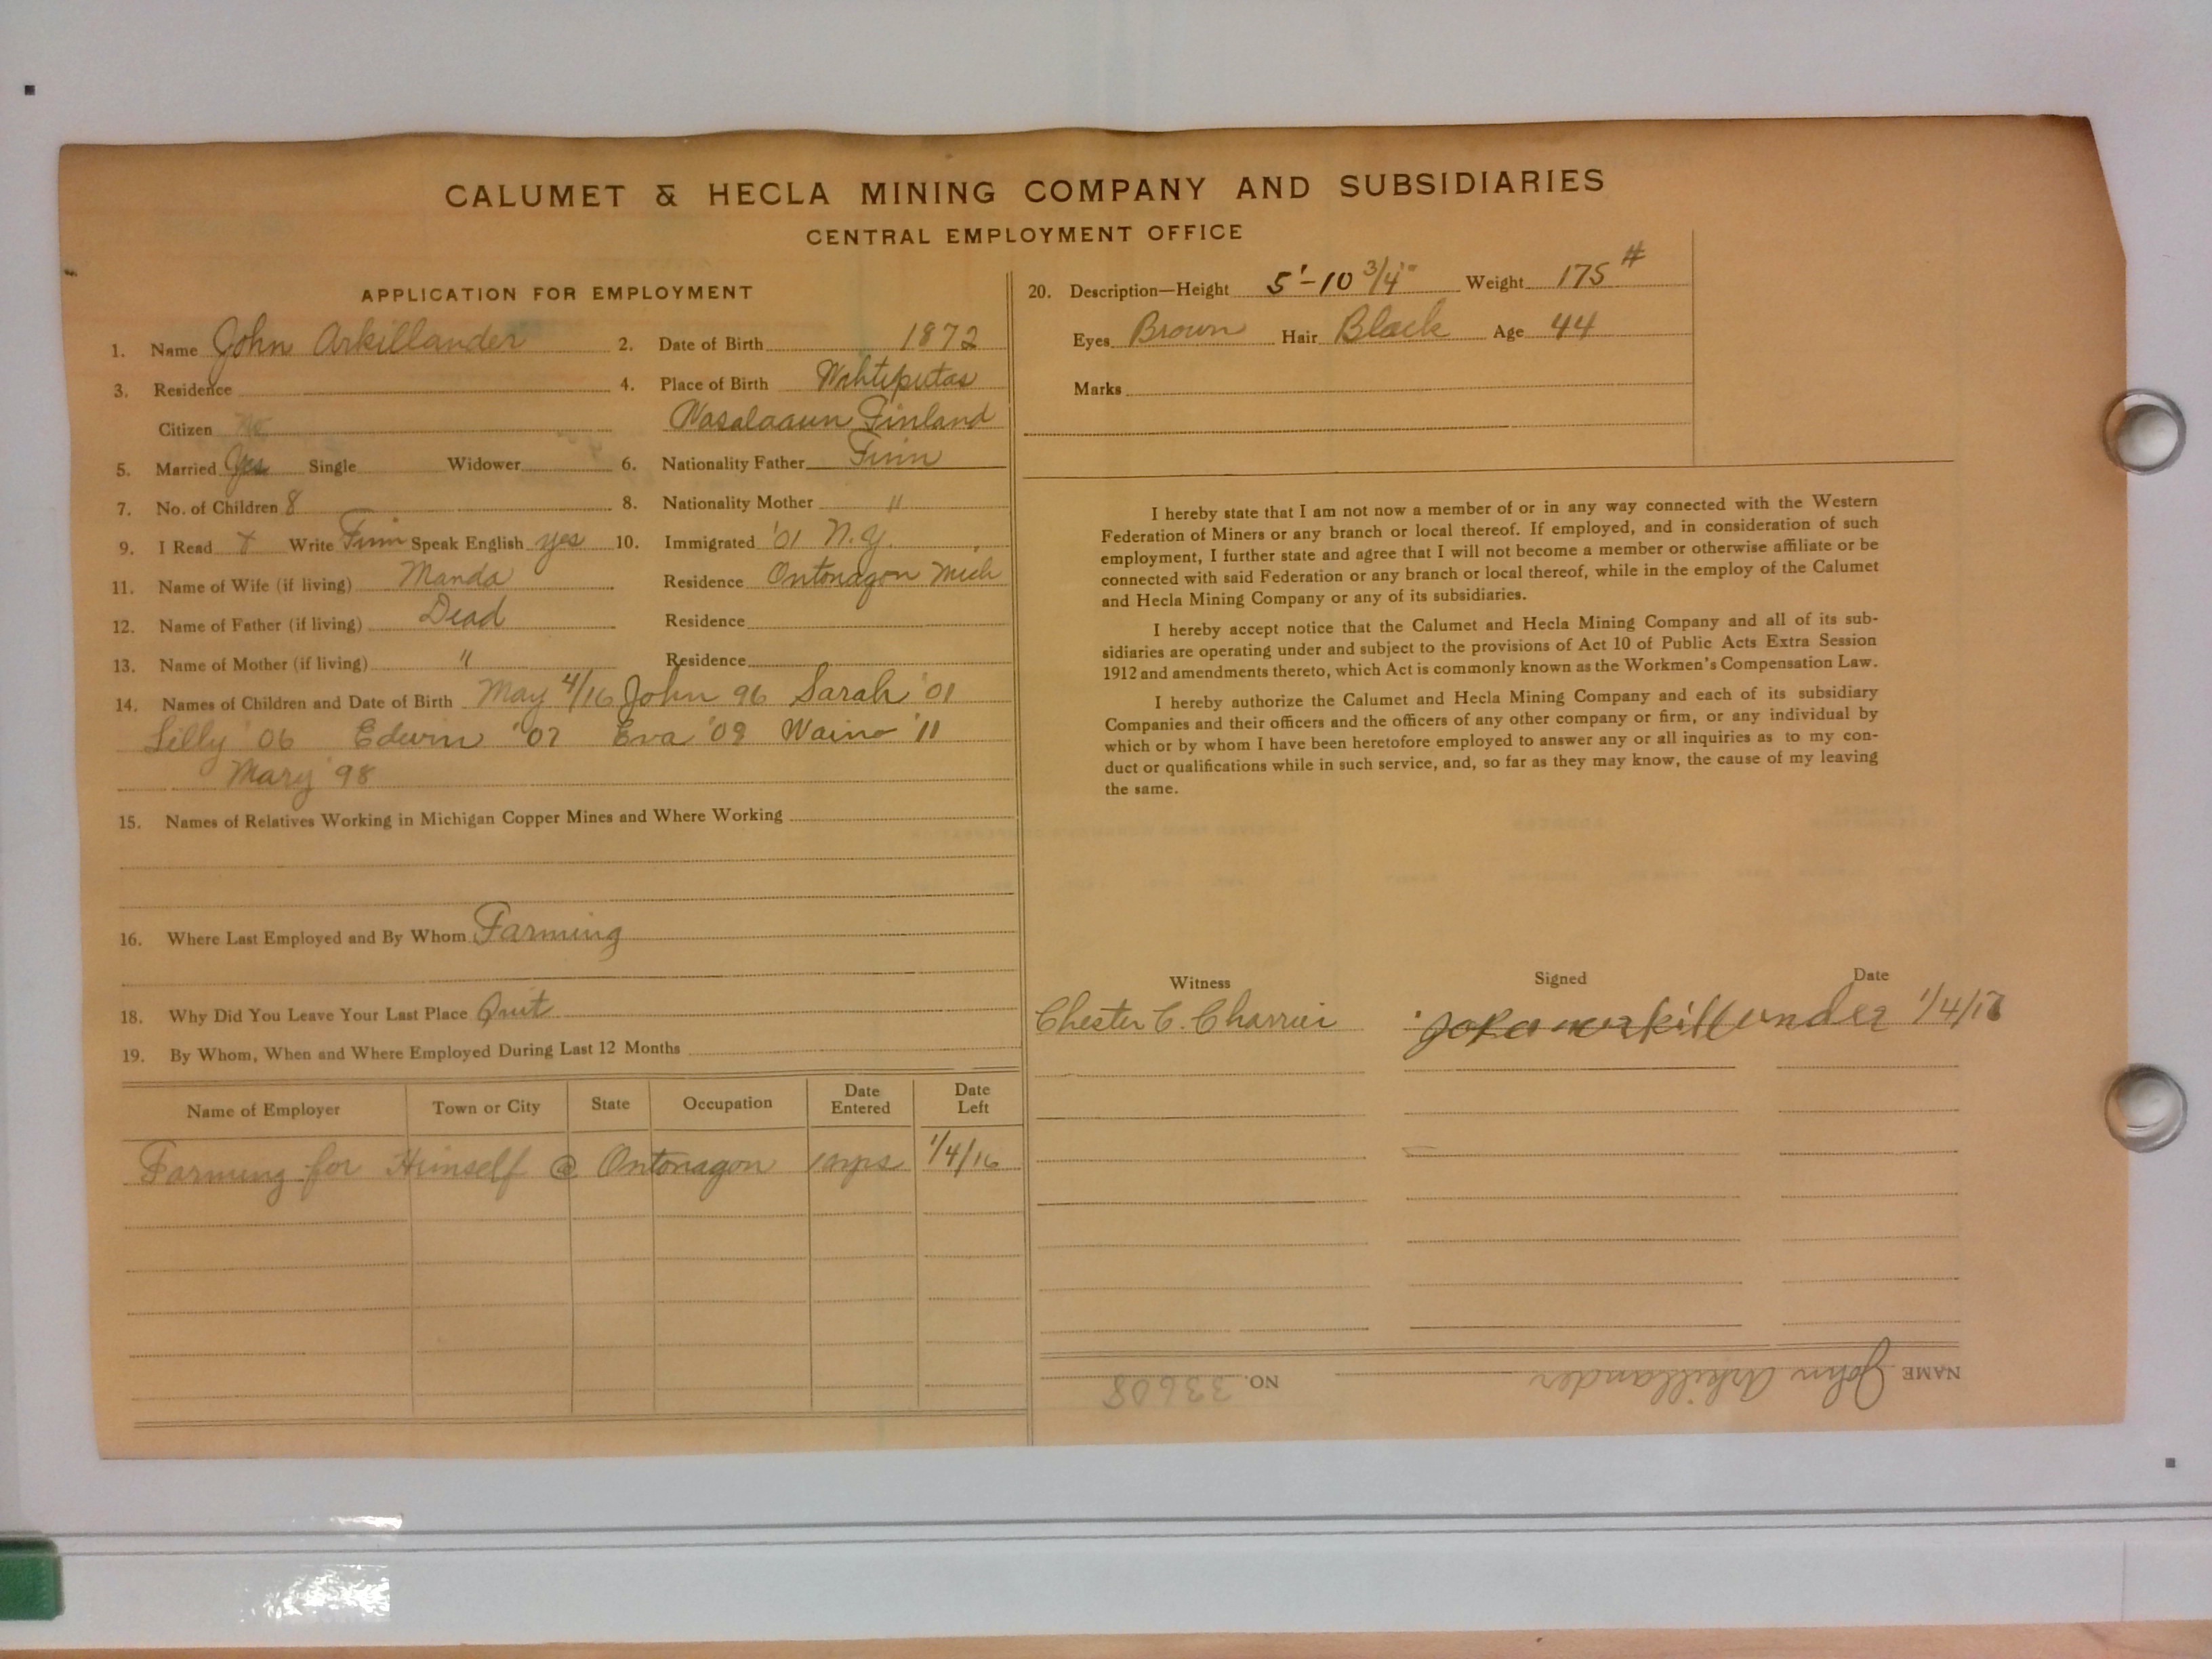 CALUMET & HECLA MINING COMPANY AND SUBSIDIARIES
CENTRAL EMPLOYMENT OFFICE
APPLICATION FOR EMPLOYMENT
1. Name John Arkillander 2. Date of Birth 1872
3. Residence 4. Place of Birth
Citizen No Finland
5. Married Yes Single Widower 6. Nationality Father Finn
7. No. of Children 8 8. Nationality Mother "
9. I Read + Write Finn Speak English yes 10. Immigrated '01 N.Y.
11. Name of Wife (if living) Manda Residence Ontonagon Mich
12. Name of Father (if living) Dead Residence
13. Name of Mother (if living) " Residence
14. Names of Children and Date of Birth May 4/16 John 96 Sarah '01
Lilly '06 Edwin '07 Eva '09 Waino '11
Mary '98
15. Names of Relatives Working in Michigan Copper Mines and Where Working
16. Where Last Employed and By Whom Farming
18. Why Did You Leave Your Last Place Quit
19. By Whom, When and Where Employed During Last 12 Months
Name of Employer Town or City State Occupation Date Entered Date Left
Farming for Himself @ Ontonagon 1/4/16
20. Description—Height 5'-10 3/4" Weight 175 #
Eyes Brown Hair Black Age 44
Marks
I hereby state that I am not now a member of or in any way connected with the Western
Federation of Miners or any branch or local thereof. If employed, and in consideration of such
employment, I further state and agree that I will not become a member or otherwise affiliate or be
connected with said Federation or any branch or local thereof, while in the employ of the Calumet
and Hecla Mining Company or any of its subsidiaries.
I hereby accept notice that the Calumet and Hecla Mining Company and all of its sub-
sidiaries are operating under and subject to the provisions of Act 10 of Public Acts Extra Session
1912 and amendments thereto, which Act is commonly known as the Workmen's Compensation Law.
I hereby authorize the Calumet and Hecla Mining Company and each of its subsidiary
Companies and their officers and the officers of any other company or firm, or any individual by
which or by whom I have been heretofore employed to answer any or all inquiries as to my con-
duct or qualifications while in such service, and, so far as they may know, the cause of my leaving
the same.
Witness Signed Date
Chester C. Charrier 1/4/16
NAME John Arkillander NO. 33608